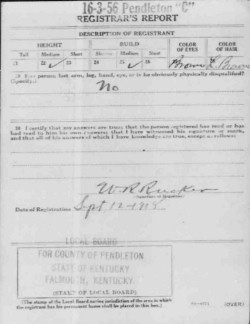 16-3-56 Pendleton "C"
REGISTRAR'S REPORT
DESCRIPTION OF REGISTRANT
HEIGHT BUILD COLOR OF EYES COLOR OF HAIR
Tall Medium Short Slender Medium Stout
21 22 ✓ 23 24 25 ✓ 26 27 Brown 28 Brown
29 Has person lost arm, leg, hand, eye, or is he obviously physically disqualified?
(Specify.)
No
30 I certify that my answers are true; that the person registered has read or has
had read to him his own answers; that I have witnessed his signature or mark,
and that all of his answers of which I have knowledge are true, except as follows:
W R Rucker
(Signature of Registrar)
Date of Registration Sept 12-1918
LOCAL BOARD
FOR COUNTY OF PENDLETON
STATE OF KENTUCKY
FALMOUTH, KENTUCKY
(STAMP OF LOCAL BOARD)
(The stamp of the Local Board having jurisdiction of the area in which
the registrant has his permanent home shall be placed in this box.)